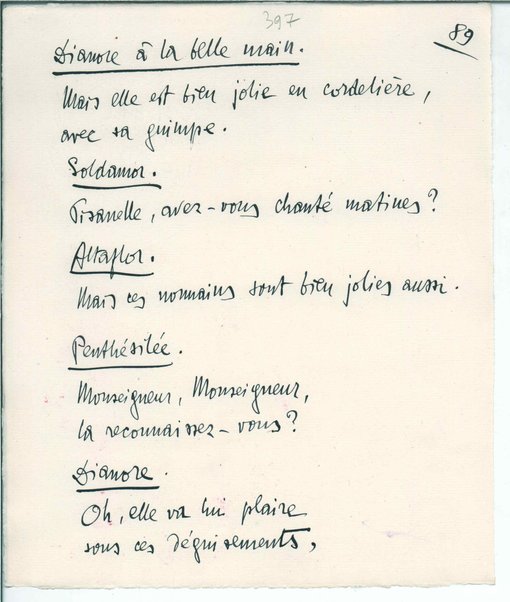 397
89
Dianore à la belle main.
Mais elle est bien jolie en cordelière,
avec sa guimpe.
Soldamor.
Pisanelle, avez-vous chanté matines?
Altaflor.
Mais ces nonnains sont bien jolies aussi.
Penthésilée.
Monseigneur, Monseigneur,
la reconnaissez-vous?
Dianore.
Oh, elle va lui plaire
sous ces déguisements,